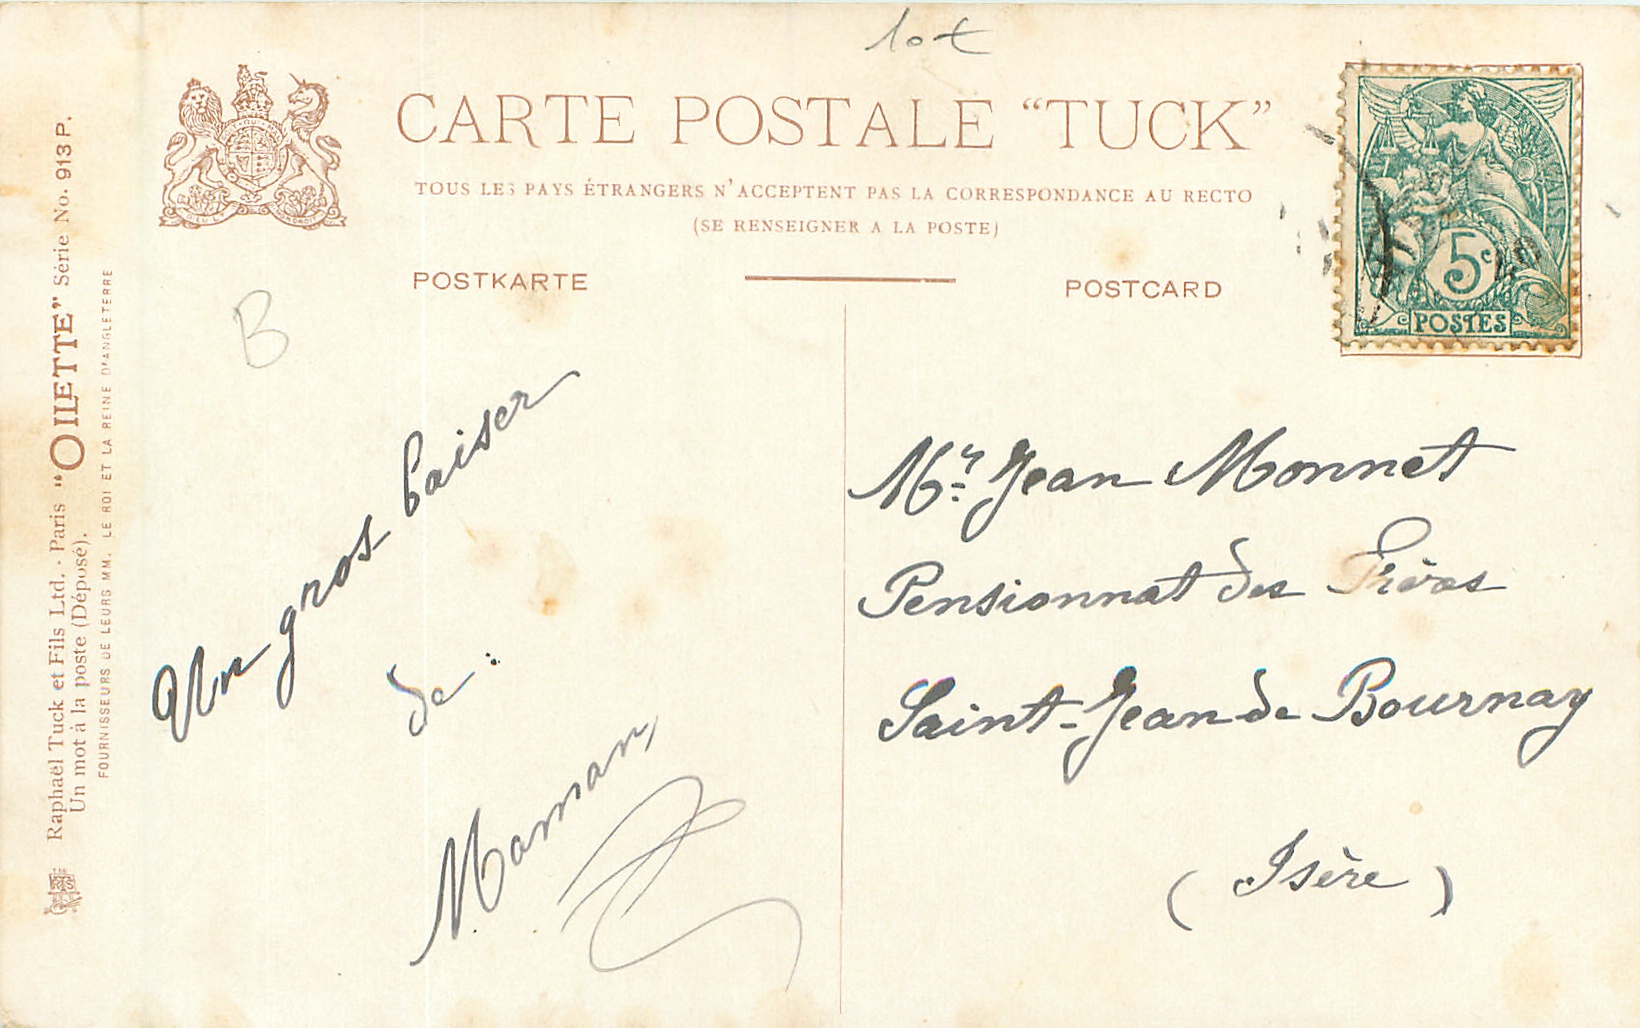 lot
CARTE POSTALE “TUCK”
TOUS LES PAYS ÉTRANGERS N'ACCEPTENT PAS LA CORRESPONDANCE AU RECTO
(SE RENSEIGNER A LA POSTE)
POSTKARTE
POSTCARD
B
Raphaël Tuck et Fils Ltd. - Paris “OILETTE” Série No. 913 P.
Un mot à la poste (Déposé).
FOURNISSEURS DE LEURS MM. LE ROI ET LA REINE D'ANGLETERRE
5c
POSTES
Un gros baiser
de :
Maman
Mr. Jean Monnet
Pensionnat des Frères
Saint-Jean de Bournay
(Isère)